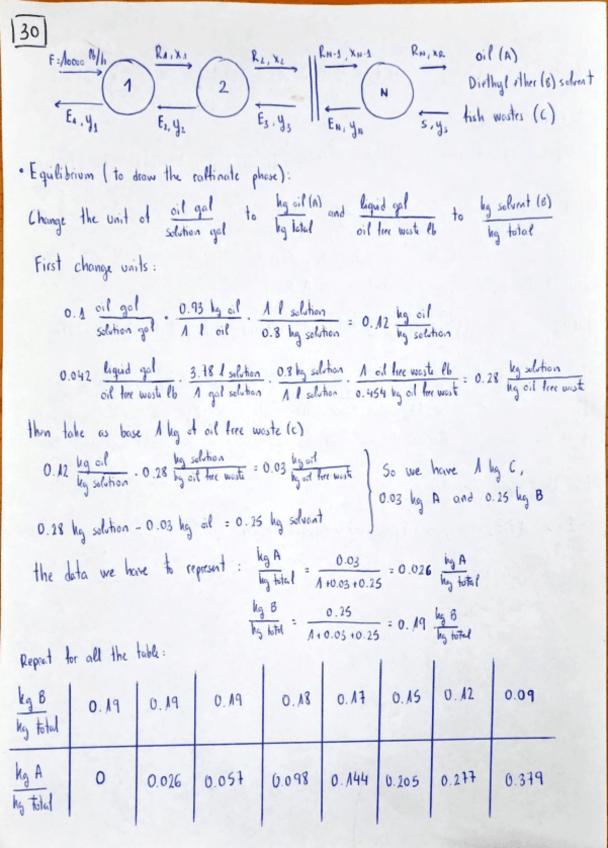 30
F=10000 lb/h R1, x1 R2, x2 RN-1, xN-1 RN, xR oil (A)
1 2 N Diethyl ether (B) solvent
E1, y1 E2, y2 E3, y3 EN, yN S, ys fish wastes (C)
• Equilibrium (to draw the raffinate phase):
Change the unit of oil gal / solution gal to kg oil (A) / kg total and liquid gal / oil free waste lb to kg solvent (B) / kg total
First change units:
0.1 oil gal / solution gal · 0.93 kg oil / 1 l oil · 1 l solution / 0.8 kg solution = 0.12 kg oil / kg solution
0.042 liquid gal / oil free waste lb · 3.78 l solution / 1 gal solution · 0.8 kg solution / 1 l solution · 1 oil free waste lb / 0.454 kg oil free waste = 0.28 kg solution / kg oil free wast
then take as base 1 kg of oil free waste (C)
0.12 kg oil / kg solution · 0.28 kg solution / kg oil free waste = 0.03 kg oil / kg oil free waste } So we have 1 kg C,
0.03 kg A and 0.25 kg B
0.28 kg solution - 0.03 kg oil = 0.25 kg solvant
the data we have to represent: kg A / kg total = 0.03 / 1+0.03+0.25 = 0.026 kg A / kg total
kg B / kg total = 0.25 / 1+0.03+0.25 = 0.19 kg B / kg total
Repeat for all the table:
kg B / kg total 0.19 0.19 0.19 0.18 0.17 0.15 0.12 0.09
kg A / kg total 0 0.026 0.057 0.098 0.144 0.205 0.277 0.379